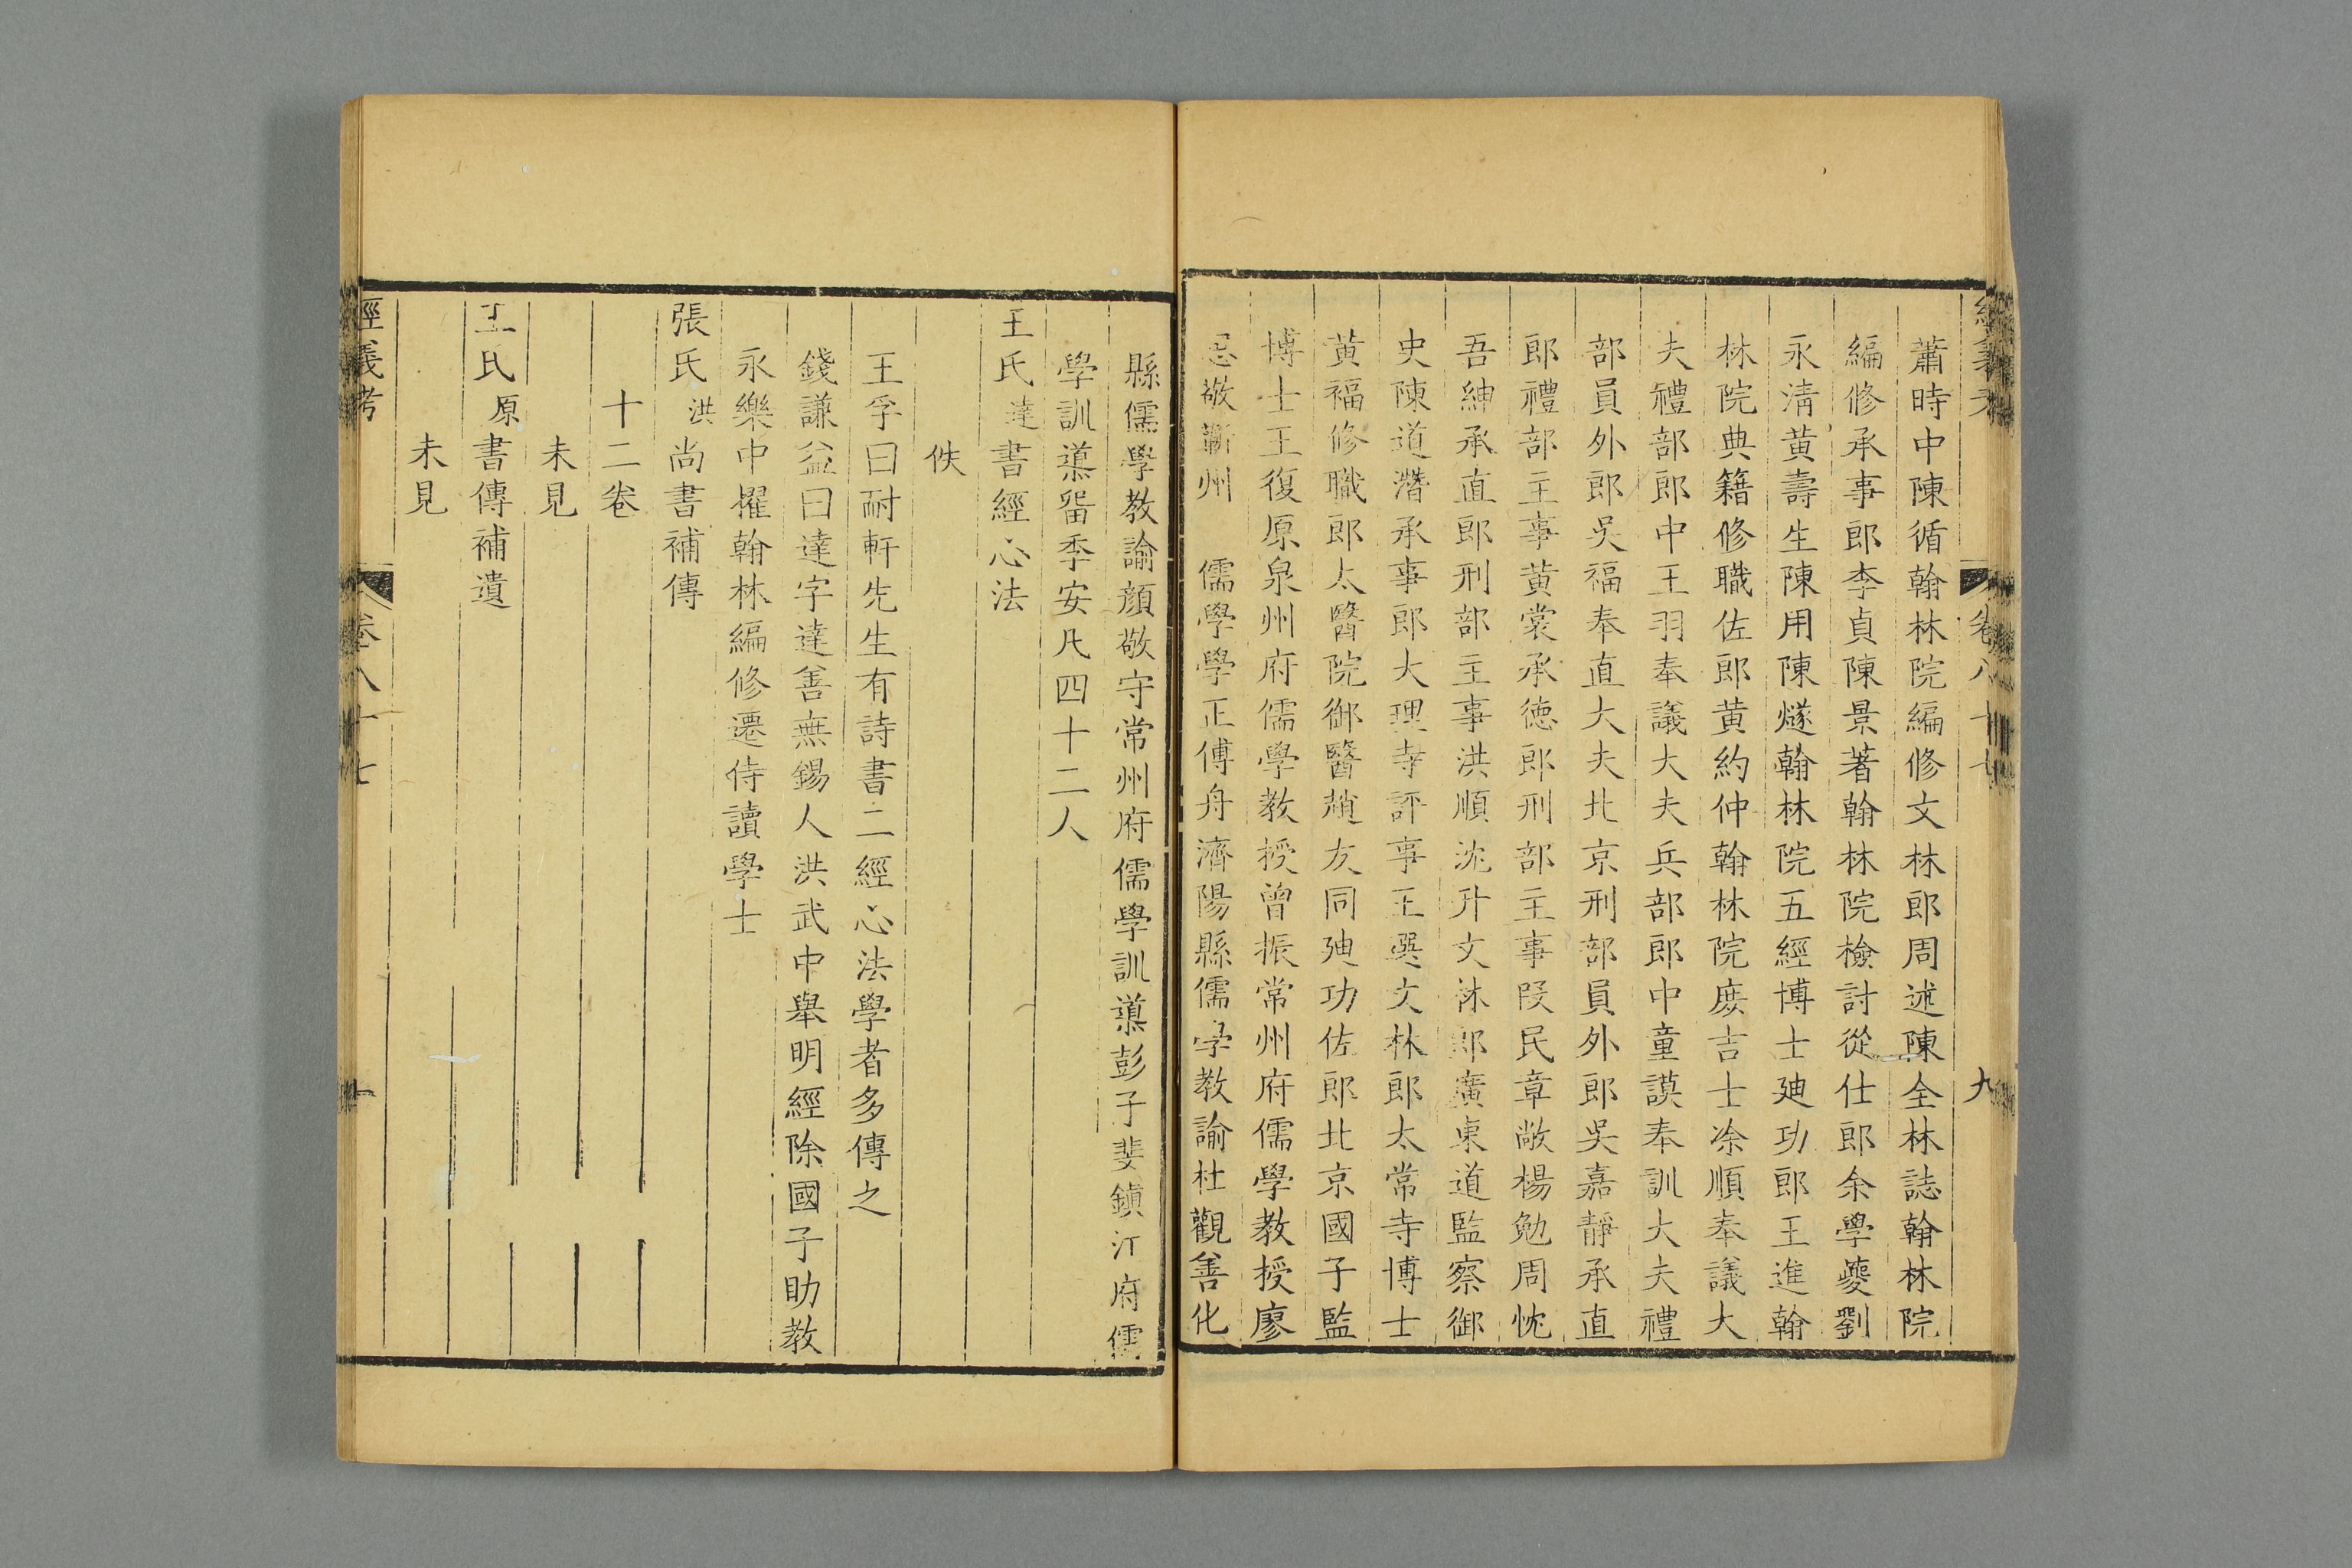 經義考
卷八十七
九
蕭時中陳循翰林院編修文林郎周述陳全林誌翰林院
編修承事郎李貞陳景著翰林院檢討從仕郎余學夔劉
永淸黄壽生陳用陳燧翰林院五經博士廸功郎王進翰
林院典籍修職佐郎黄約仲翰林院庶吉士凃順奉議大
夫禮部郎中王羽奉議大夫兵部郎中童謨奉訓大夫禮
部員外郎吳福奉直大夫北京刑部員外郎吳嘉靜承直
郎禮部主事黄裳承德郎刑部主事段民章敞楊勉周忱
吾紳承直郎刑部主事洪順沈升文林郎廣東道監察御
史陳道潛承事郎大理寺評事王選文林郎太常寺博士
黄福修職郎太醫院御醫趙友同廸功佐郎北京國子監
博士王復原泉州府儒學教授曾振常州府儒學教授廖
思敬蘄州儒學學正傅舟濟陽縣儒学教諭杜觀善化
縣儒學教諭顔敬守常州府儒學訓導彭子斐鎮江府儒
學訓導畱季安凡四十二人
王氏達書經心法
佚
王孚曰耐軒先生有詩書二經心法學者多傳之
錢謙益曰達字達善無錫人洪武中舉明經除國子助教
永樂中擢翰林編修遷侍讀學士
張氏洪尚書補傳
十二卷
未見
王氏原書傳補遺
未見
經義考
卷八十七
十